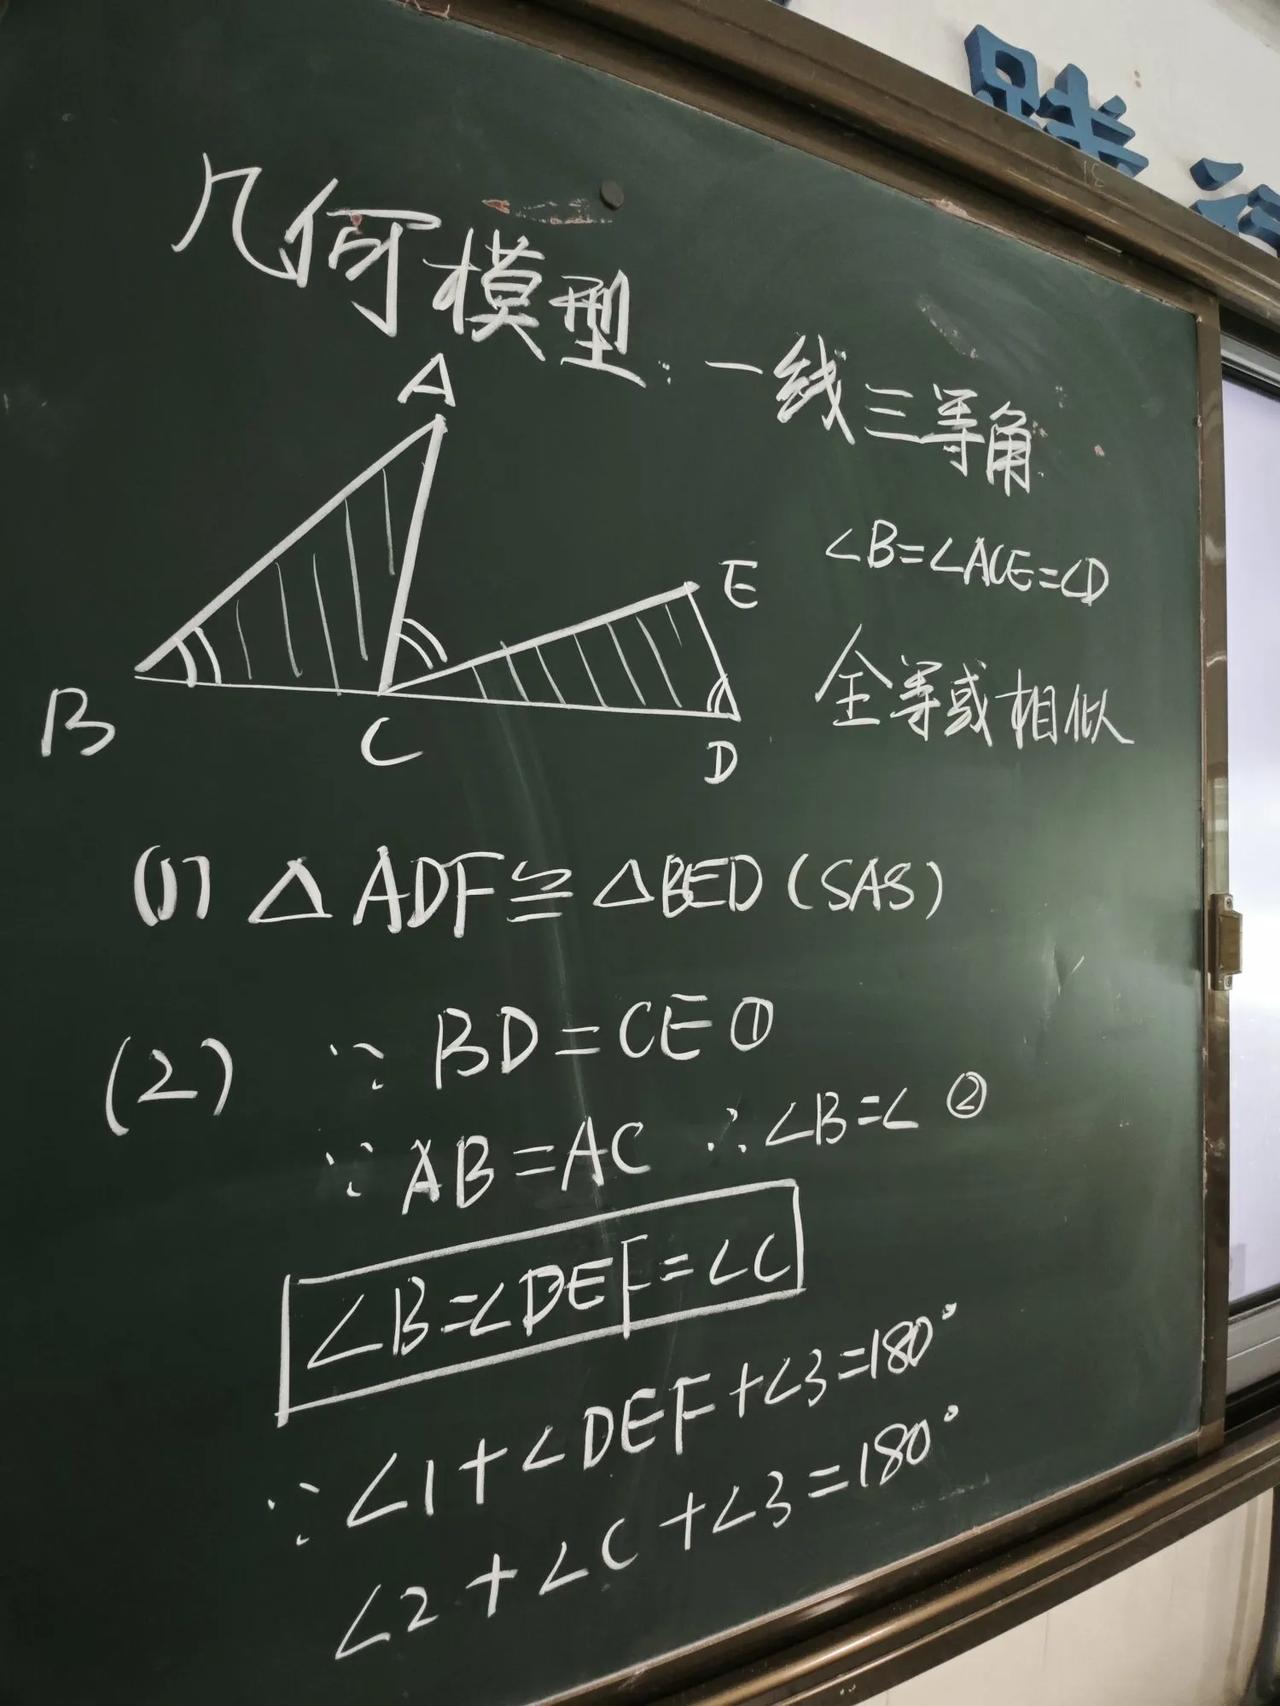 几何模型:一线三等角
A
B
C
D
E
∠B=∠ACE=∠D
全等或相似
(1) △ADF≌△BED(SAS)
(2) ∵ BD=CE①
∵ AB=AC ∴∠B=∠ ②
∠B=∠DEF=∠C
∵ ∠1+∠DEF+∠3=180°
∠2+∠C+∠3=180°
践